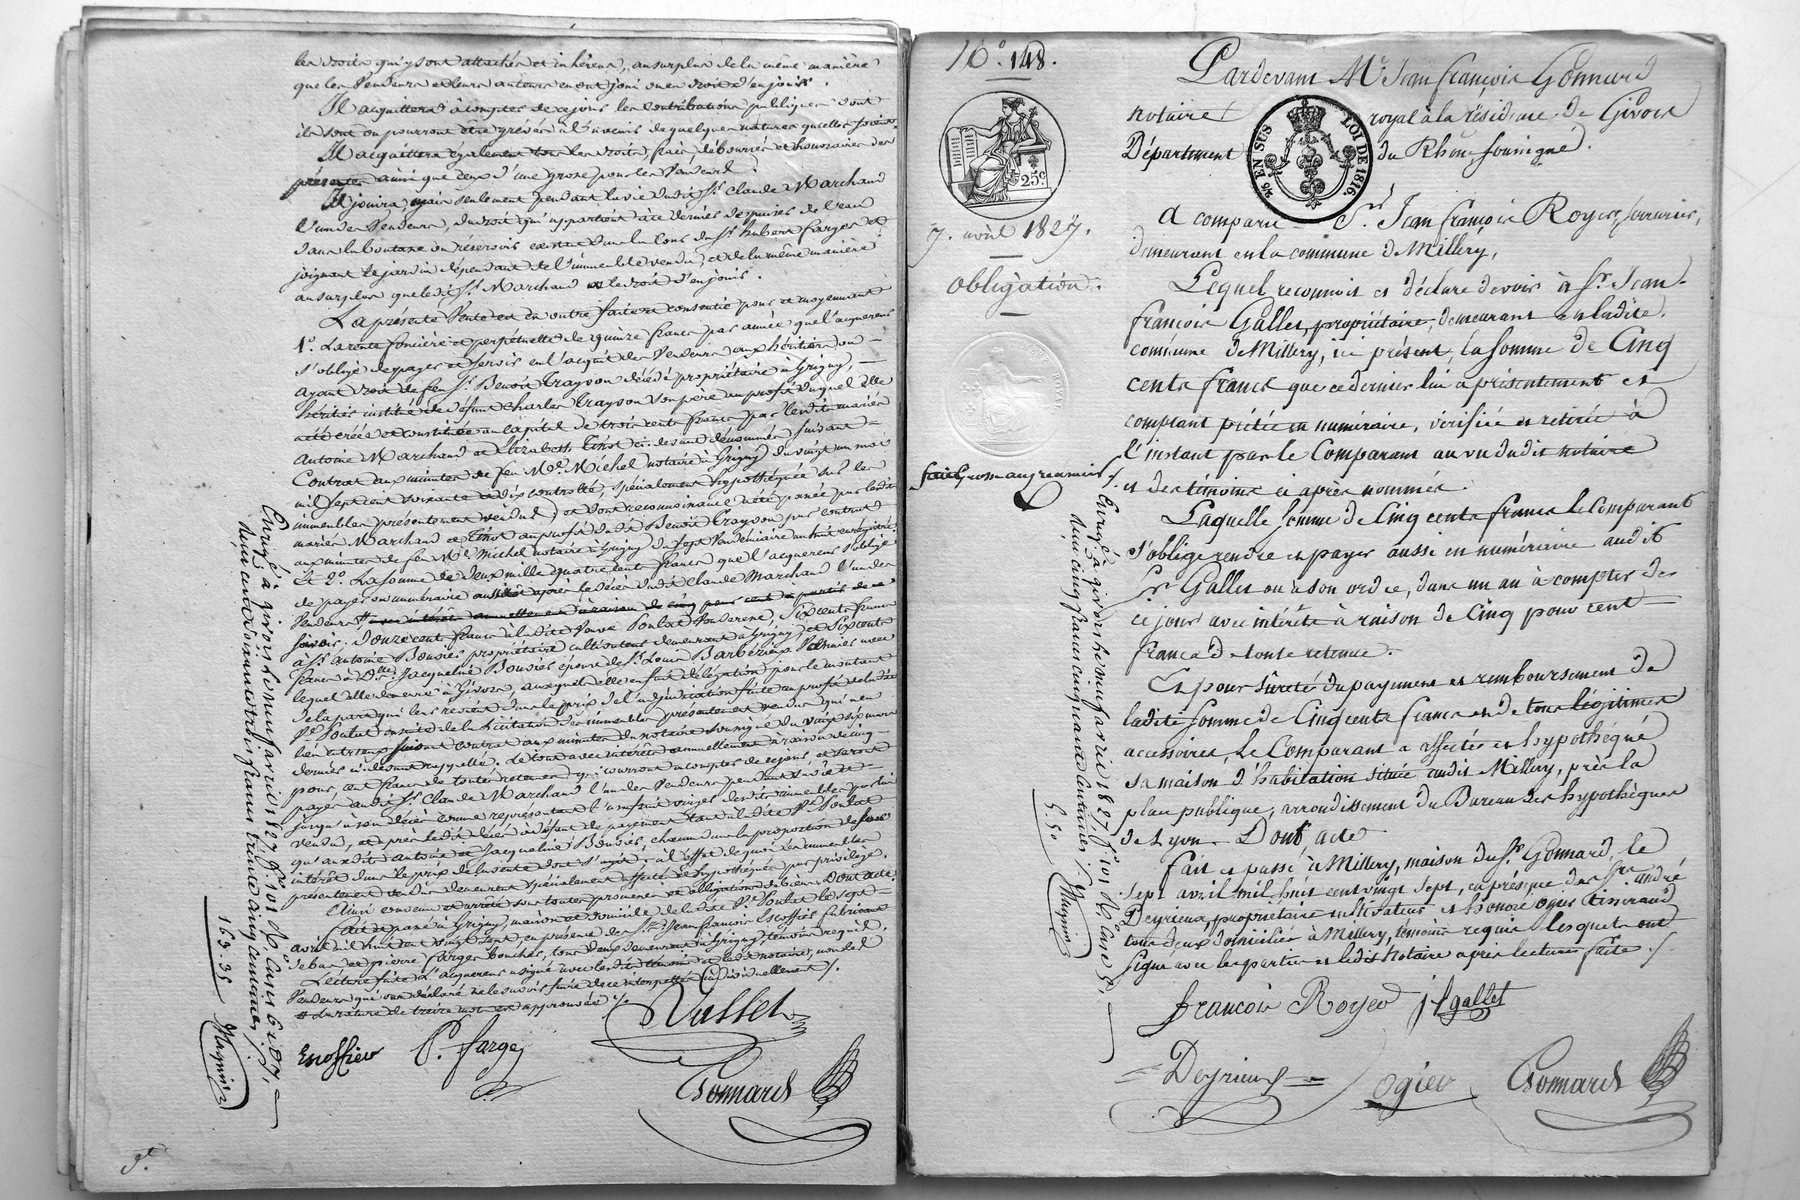 les droits qui y sont attachés et inhérens, au surplus de la même manière
que les Vendeurs et leurs auteurs en ont joui ou eu droit d'en jouir.
Il acquittera à compter de ce jour les contributions publiques dont
ils sont ou pourront être grévés à l'avenir de quelque nature qu'elles soient.
Il acquittera également tous les droits, frais, déboursés et honoraires des
présentes ainsi que ceux d'une grosse pour les Vendeurs.
Il jouira, mais seulement pendant la vie dudit Sr. Claude Marchand
l'un des Vendeurs, du droit qu'appartient à ce dernier de puiser de l'eau
dans la boutasse ou réservoir existant dans le clos du Sr. hubert farges et
joignant le jardin dépendant de l'immeuble vendu, et de la même manière
au surplus que ledit Sr. Marchand a le droit d'en jouir.
La présente Vente est en outre faite et consentie pour et moyennant
1o. La rente foncière et perpétuelle de quinze francs par année que l'acquereur
s'oblige de payer et servir en l'acquit des Vendeurs aux héritiers ou
ayant droit de feu Sr. Benoit Trayson décédé propriétaire à Grigny,
héritier institué de défunt Charles Trayson son père au profit duquel elle
a été créée et constituée au capital de trois cents francs par lesdits mariés
Antoine Marchand et Elizabeth Thot ci-devant dénommés suivant
Contrat aux minutes de feu Me. Michel notaire à Grigny du vingt un mai
mil sept cent soixante et dix controllé, spécialement hypothéquée sur les
immeubles présentement vendus; et dont reconnaissance a été passée par lesdits
mariés Marchand et Thot au profit dudit Benoit Trayson, par contrat
aux minutes de feu Me. Michel notaire à Grigny du sept Vendémiaire an huit enregistré
Et 2o. La somme de deux mille quatre cents francs que l'acquereur s'oblige
de payer en numéraire aussitôt après le décès dudit Claude Marchand l'un des
Vendeurs,
savoir; Douze cents francs à ladite Veuve Poulat Venderesse, Six cents francs
à Sr. antoine Bousier propriétaire cultivateur demeurant à Grigny, et Six cents
francs à De. Jacqueline Bousier épouse de Sr. Louis Barbézieux Vannier avec
lequel elle demeure à Givors, auxquels elle en fait délégation pour le montant
de la part qui leur revient dans le prix de l'adjudication faite au profit de ladite
Ve. Poulat ensuite de la licitation des immeubles présentement vendus qui a eu
lieu entr'eux suivant contrat aux minutes du notaire soussigné du vingt six mars
dernier ci-devant rappellé. Le tout avec intérêts annuellement à raison de cinq
pour cent francs de toute retenue, qui courront à compter de ce jour, et seront
payés audit Sr. Claude Marchand l'un des Vendeurs pendant sa vie et
jusqu'à son décès comme représentant l'usufruit
vendu, et après ledit décès à défaut de payement tant à ladite Ve. Poulat
qu'auxdits Antoine et Jacqueline Bousier, chacun dans la proportion de son
intérêt dans le prix de la vente dont s'agit; à l'effet de quoi les immeubles
présentement vendus demeurent spécialement affectés et hypothéqués par privilège.
Ainsi convenu et arrêté sous toutes promesses et obligations de biens. Dont acte.
Fait et passé à Grigny, maison et domicile de ladite Ve. Poulat le sept
avril mil huit cent vingt sept, en présence des Srs. Jean françois Escoffier fabricant
de bas et pierre farges boucher, tous deux demeurant à Grigny, témoins requis.
Lecture faite l'acquereur a signé avec lesdits témoins et ledit notaire, non les
Vendeurs qui ont déclaré ne le savoir faire de ce interpellés individuellement /.
# La rature de treize mots est approuvée
Vallet
Escoffier P. farge
Gonnard
Enrgé. à givors le neuf avril 1827 fo. 101
deux cent
163. 35 Magnin
No. 148.
25c
7. avril 1827.
Obligation.
Pardevant Me. Jean françois Gonnard
notaire royal à la résidence de Givors
Département du Rhône soussigné.
25 EN SUS LOI DE 1816.
A comparu Sr. Jean françois Royer, serrurier,
demeurant en la commune de Millery,
Lequel reconnoit et déclare devoir à Sr. Jean-
françois Gallet, propriétaire, demeurant en ladite
commune de Millery, ici présent, la somme de Cinq
cents francs que ce dernier lui a présentement et
comptant prêtée en numéraire, vérifiée et retirée à
l'instant par le Comparant au vu dudit notaire
et des témoins ci après nommés.
Laquelle somme de Cinq cents francs le Comparant
s'oblige rendre et payer aussi en numéraire audit
Sr. Gallet ou à son ordre, dans un an à compter de
ce jour avec intérêts à raison de Cinq pour cent
francs de toute retenue.
Et pour sûreté du payement et remboursement de
ladite somme de Cinq cents francs et de tous légitimes
accessoires, le Comparant a affecté et hypothéqué
sa maison d'habitation située audit Millery, près la
place publique, arrondissement du Bureau des hypothèques
de Lyon. Dont acte
fait et passé à Millery, maison du Sr. Gonnard, le
sept avril mil huit cent vingt sept, en présence des Srs. andré
Deyrieux, propriétaire cultivateur et honoré ogier tisserand
tous deux domiciliés à Millery, témoins requis lesquels ont
signé avec les parties et ledit notaire après lecture faite /.
françois Royer jf gallet
Deyrieux ogier Gonnard
Enrgé. à givors le neuf avril 1827, fo. 101 Ro. Case 5.
deux cinq francs cinquante centimes
5. 50 Magnin